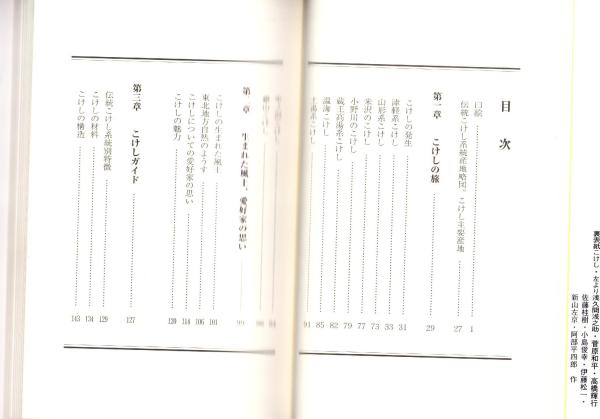 裏表紙こけし・左より浅久間浅之助・菅原和平・高橋輝行
佐藤桂樹・小島俊幸・伊藤松一・
新山左京・阿部平四郎 作
目次
口絵 1
伝統こけし系統産地略図、こけし主要産地 27
第一章 こけしの旅 29
こけしの発生 31
津軽系こけし 33
山形系こけし 73
米沢のこけし 77
小野川のこけし 79
蔵王高湯系こけし 82
温海こけし 85
土湯系こけし 91
94
98
生まれた風土、愛好家の思い 99
こけしの生まれた風土 101
東北地方自然のようす 106
こけしについての愛好家の思い 118
こけしの魅力 120
第三章 こけしガイド 127
伝統こけし系統別特徴 129
こけしの材料 134
こけしの構造 143